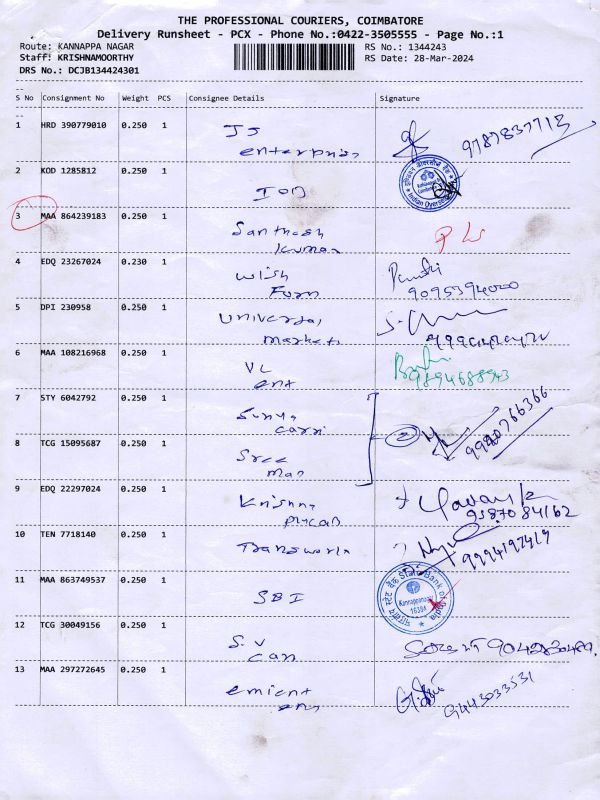 THE PROFESSIONAL COURIERS, COIMBATORE
Delivery Runsheet - PCX - Phone No.:0422-3505555 - Page No.:1
Route: KANNAPPA NAGAR RS No.: 1344243
Staff: KRISHNAMOORTHY RS Date: 28-Mar-2024
DRS No.: DCJB134424301
--
S No Consignment No Weight PCS Consignee Details Signature
--
1 HRD 390779010 0.250 1 JJ 9787837713
enterprises
2 KOD 1285812 0.250 1 IOB
Indian Overseas
3 MAA 864239183 0.250 1 Santhosh
Kumar
4 EDQ 23267024 0.230 1 Wish
Form 9095394000
5 DPI 230958 0.250 1 Universal
market
6 MAA 108216968 0.250 1 VL
ent 9894688943
7 STY 6042792 0.250 1 Surya
carri 2
8 TCG 15095687 0.250 1 Sree 9980766366
Man
9 EDQ 22297024 0.250 1 Krishna
9587084162
10 TEN 7718140 0.250 1 Transworld 9994197419
11 MAA 863749537 0.250 1 SBI
भारतीय स्टेट बैंक State Bank of India
Kannappanagar
16384
12 TCG 30049156 0.250 1 S.V
can
13 MAA 297272645 0.250 1 emient 9443033531